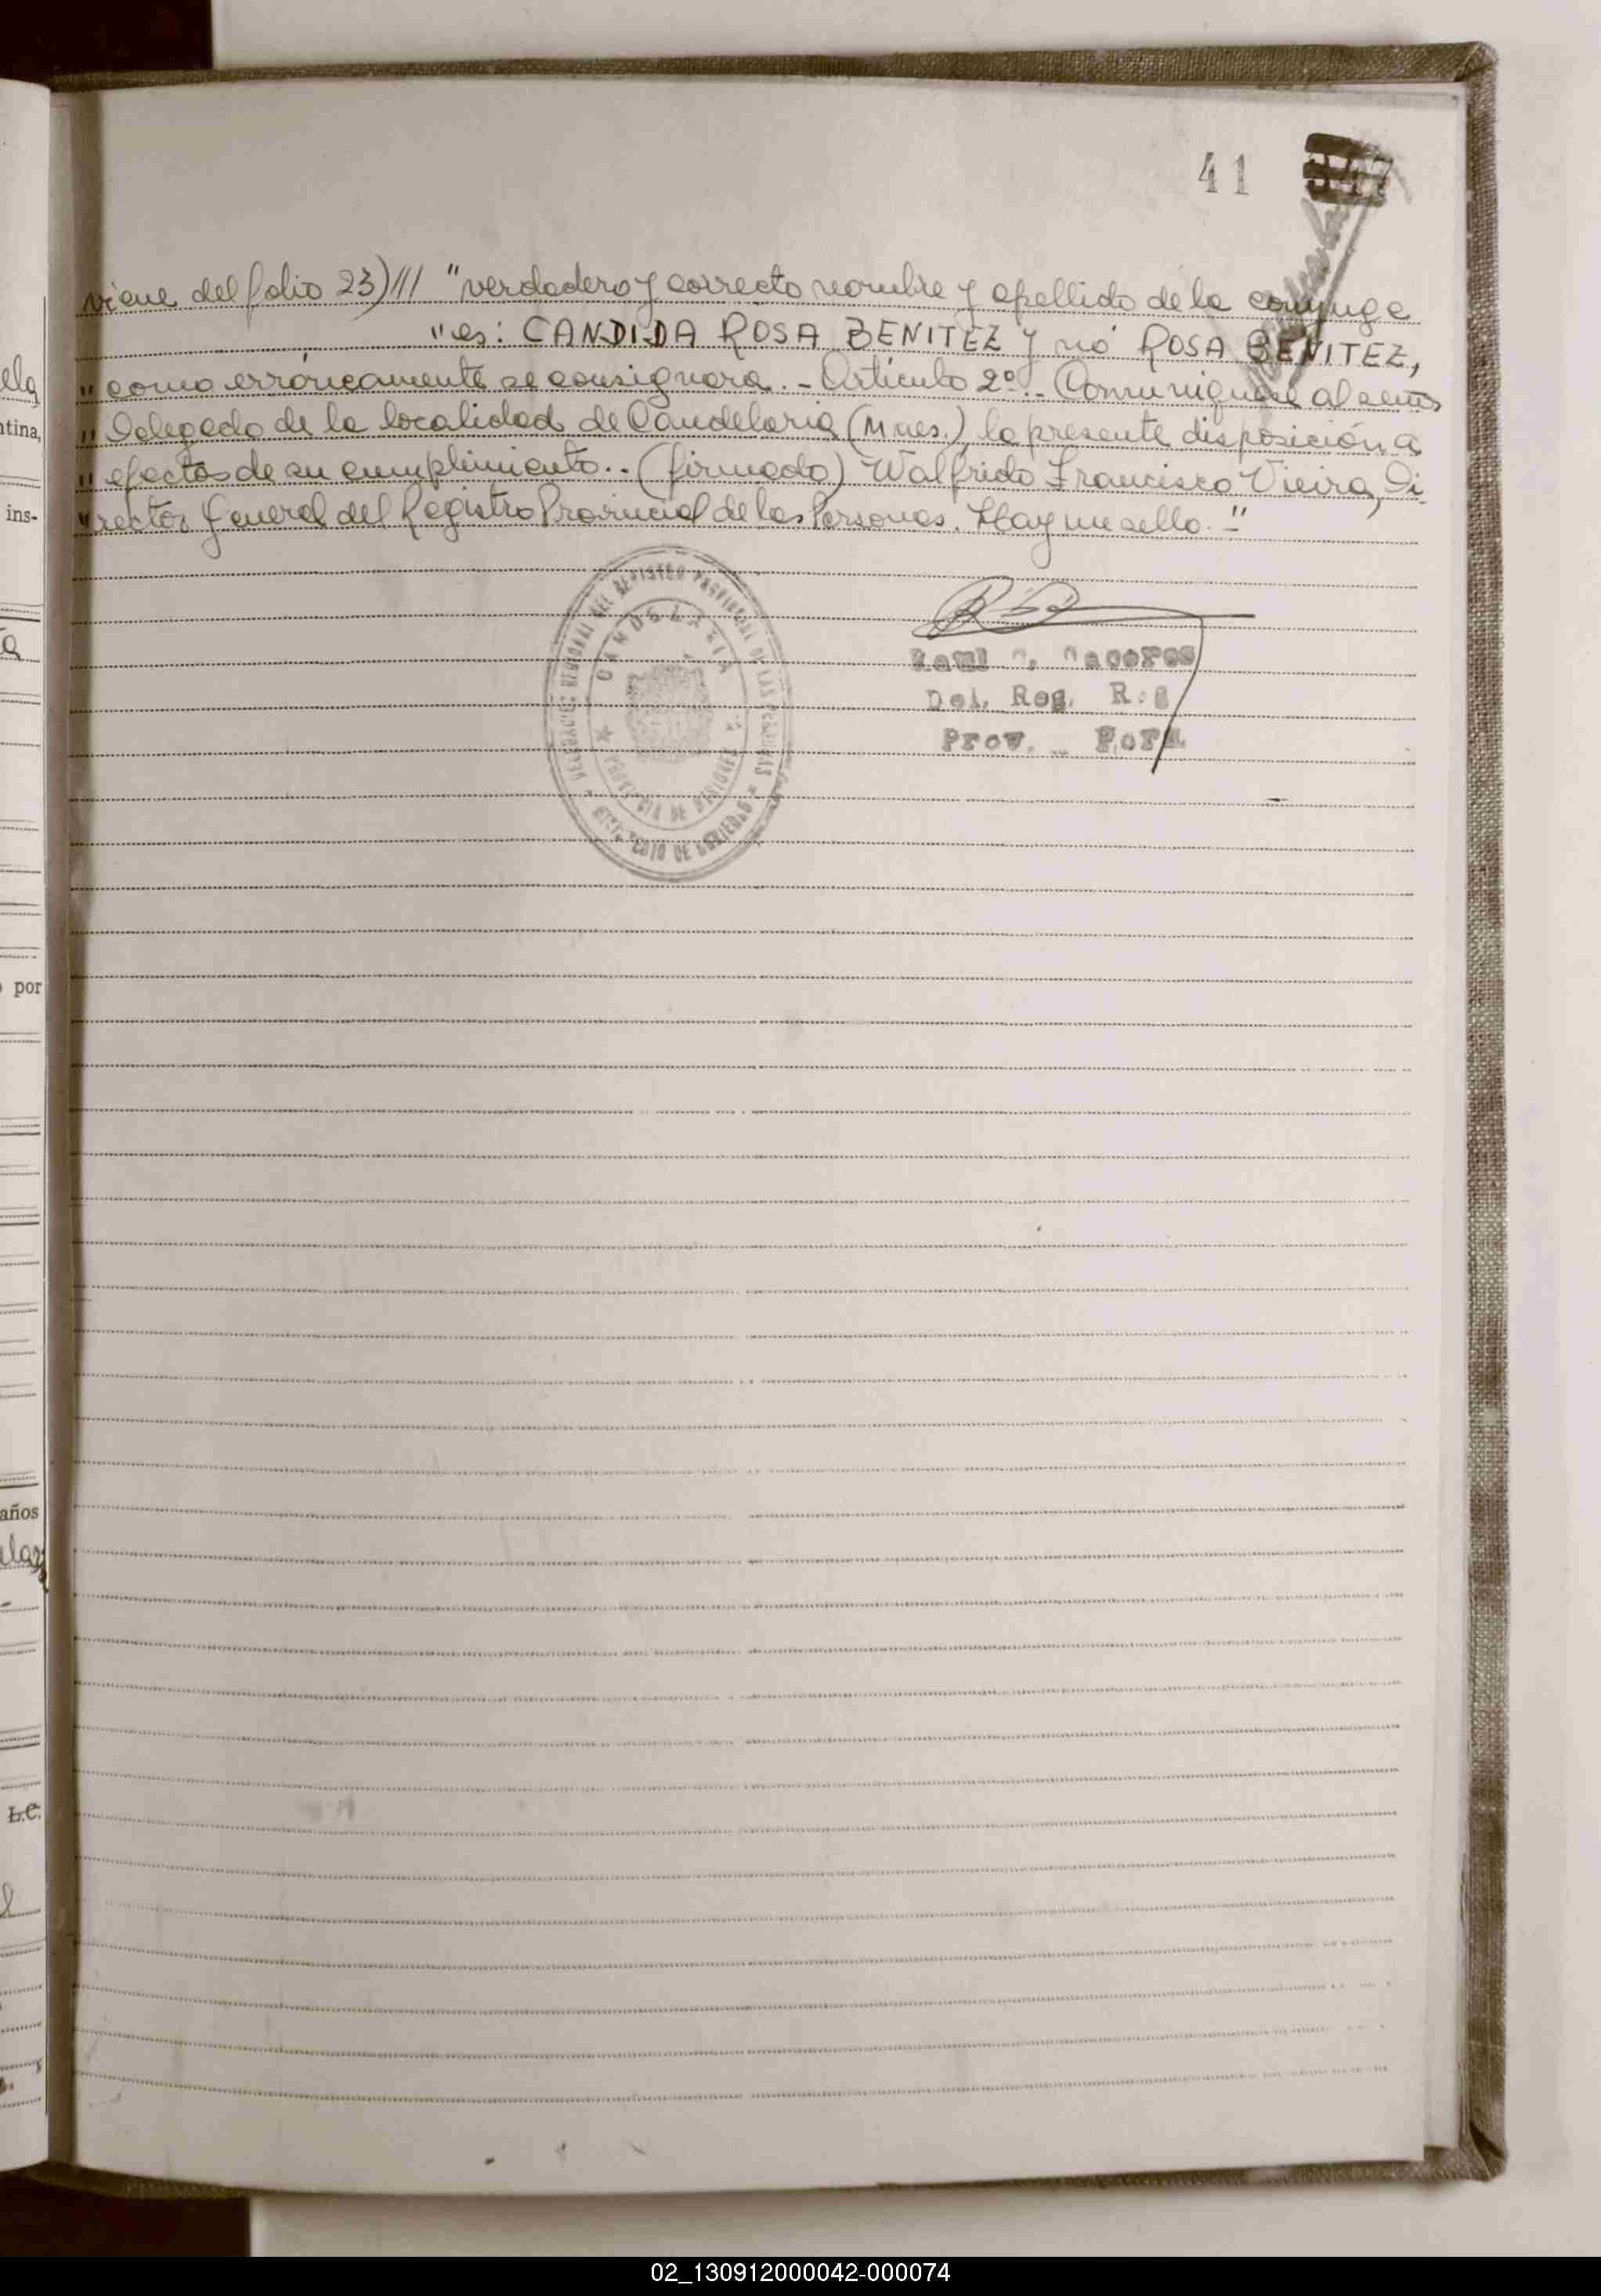 41
viene del folio 23)/// "verdadero y correcto nombre y apellido de la conyuge
"es: CANDIDA ROSA BENITEZ y nó ROSA BENITEZ,
" como erróneamente se consignara.- Artículo 2º.- Comuniquese al señor
" Delegado de la localidad de Candelaria (Mnes.) la presente disposición a
" efectos de su cumplimiento.. (firmado) Walfrido Francisco Vieira, Di-
" rector General del Registro Provincial de las Personas. Hay un sello.-"
REGIONAL DEL REGISTRO PROVINCIAL DE LAS PERSONAS
CANDELARIA
PROVINCIA DE MISIONES
MINISTERIO DE GOBIERNO
Del. Reg. Reg
Prov. Pers.
ela
tina,
ins-
a
por
años
L.C.
02_130912000042-000074